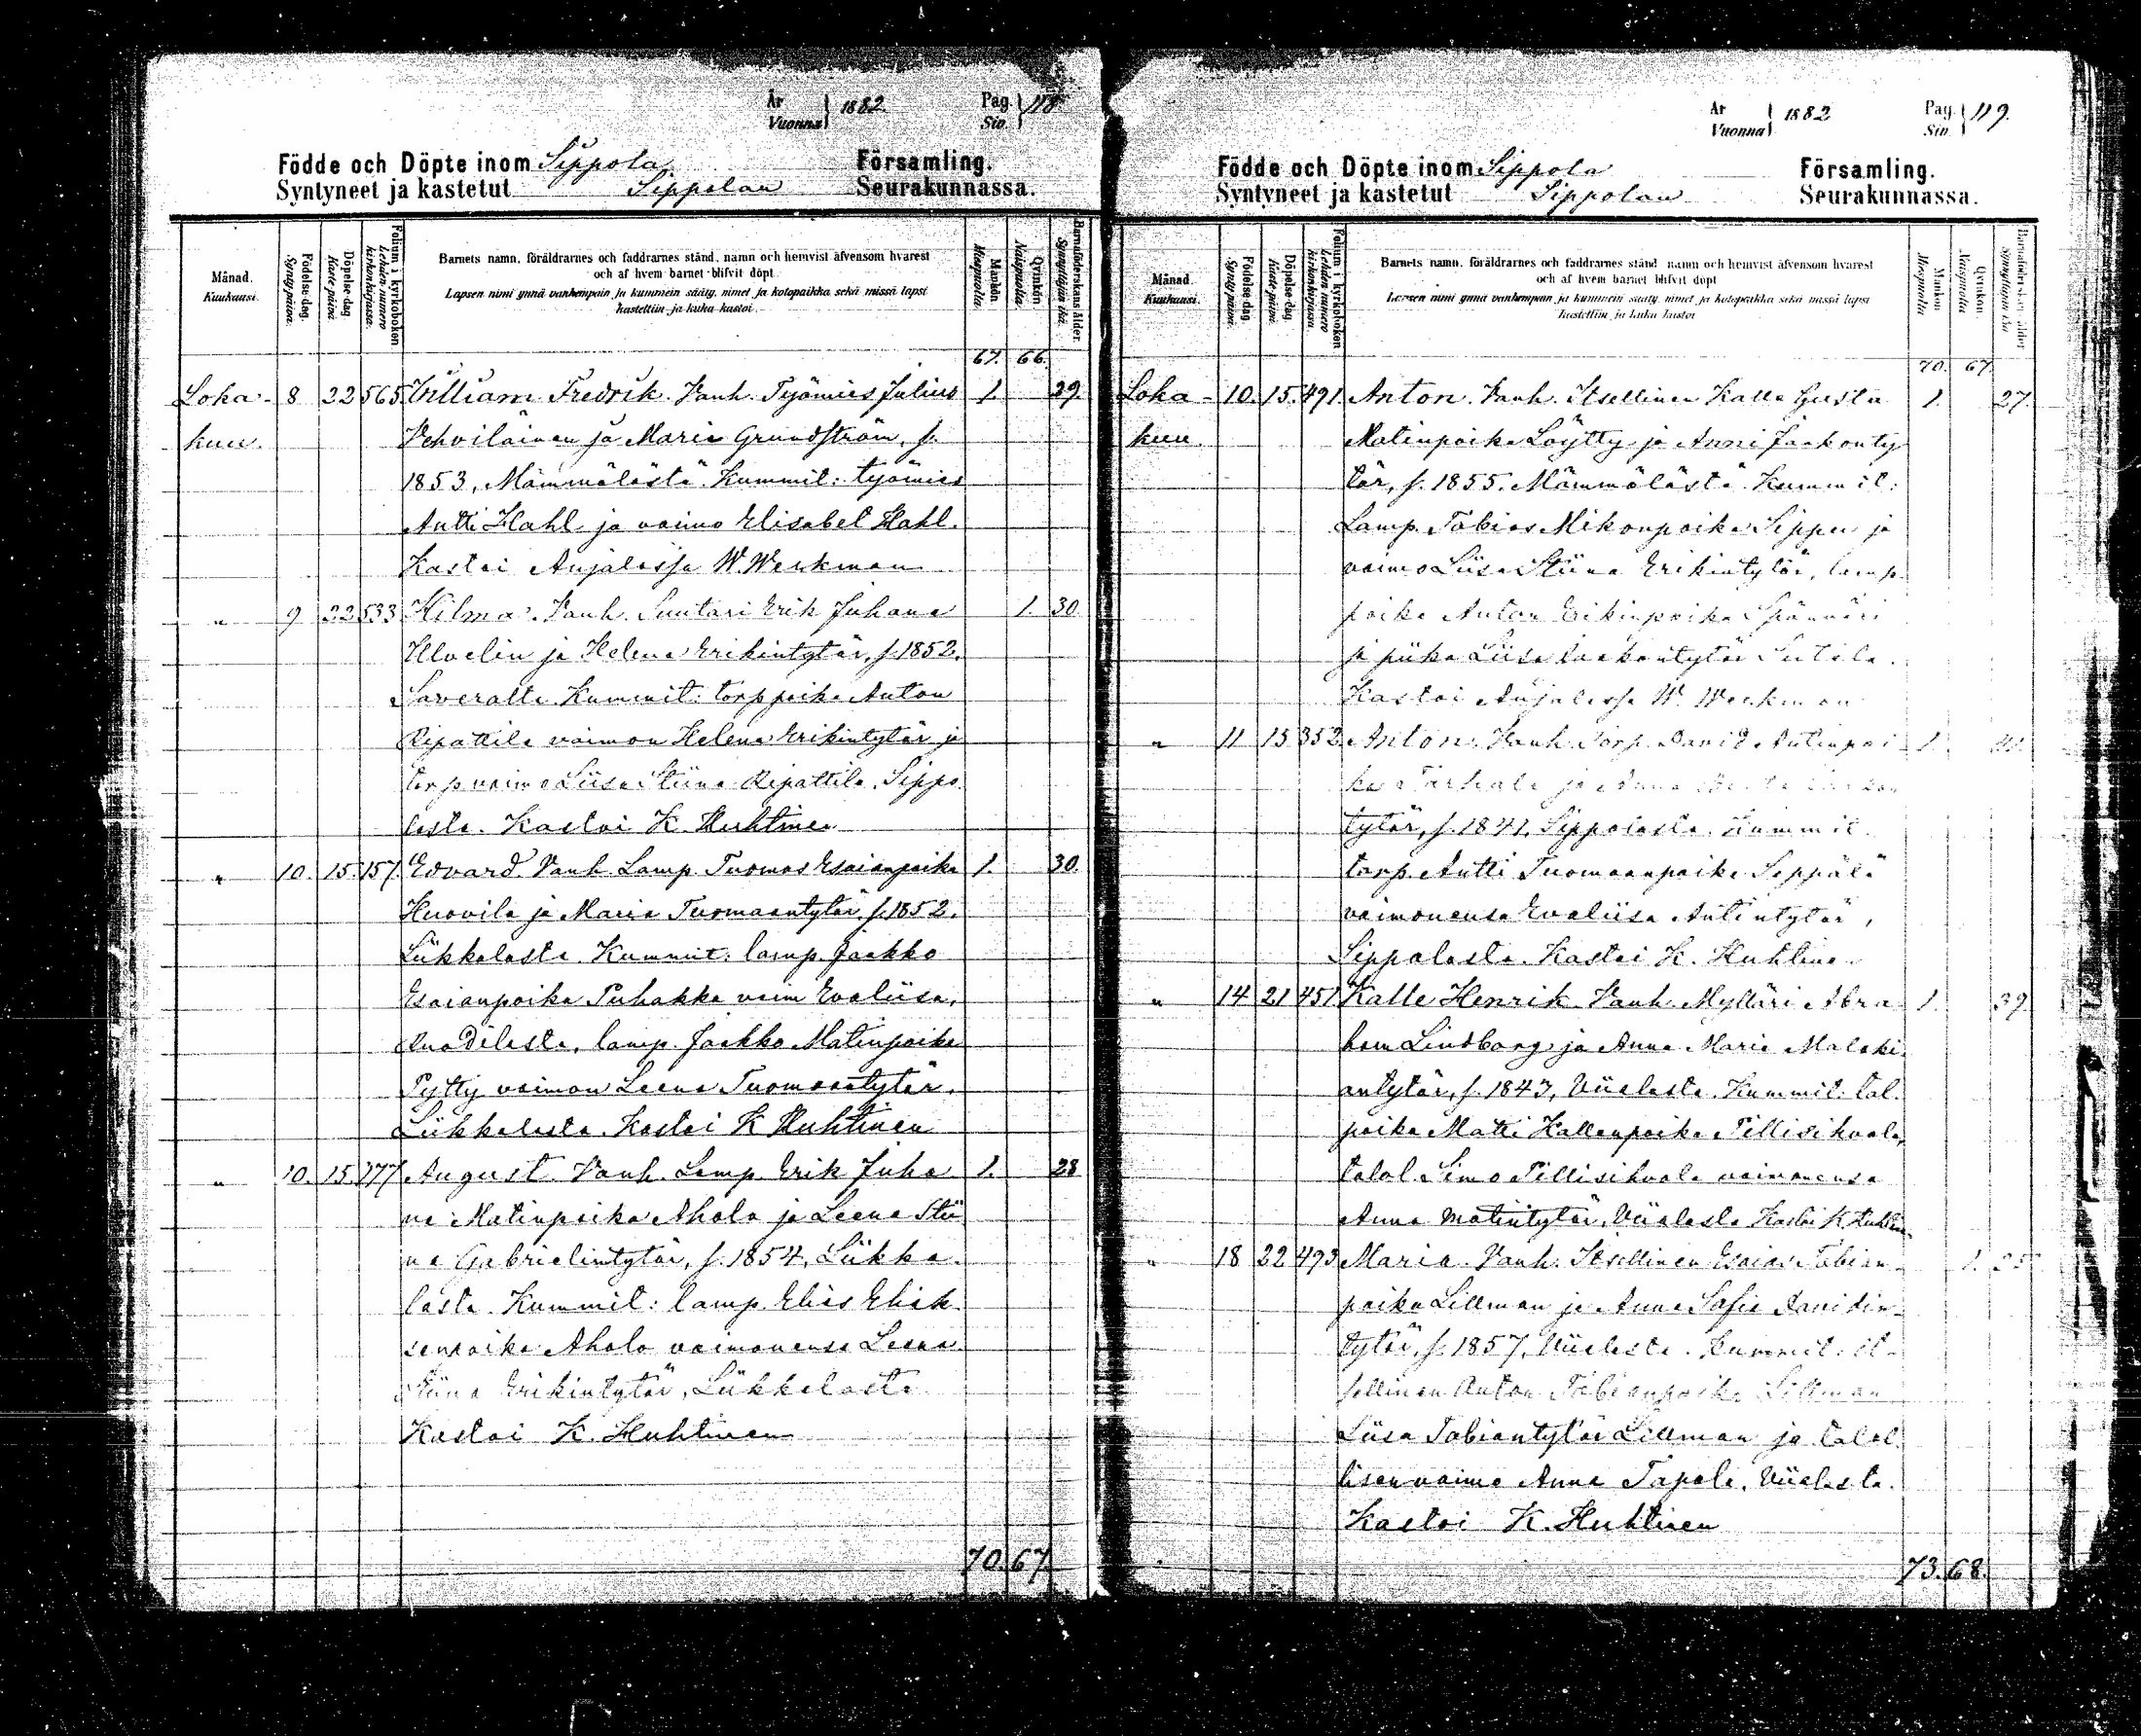 År
Vuonna } 1882.
Pag.
Siv. } 118
Födde och Döpte inom Sippola Församling.
Syntyneet ja kastetut Sippolan Seurakunnassa.
Månad.
Kuukausi.
Födelse-dag.
Syntymäpäivä.
Döpelse-dag.
Kaste-päivä.
Folium i kyrkoboken
Lehden-numero kirkonkirjassa.
Barnets namn, föräldrarnes och faddrarnes stånd, namn och hemvist äfvensom hvarest
och af hvem barnet blifvit döpt.
Lapsen nimi ynnä vanhempain ja kummein sääty, nimet ja kotopaikka sekä missä lapsi
kastettiin ja kuka kastoi.
Mankön
Miespuolia.
Qvinkön
Naispuolia.
Barnaföderskans ålder.
Synnyttäjän ikä.
67. 66.
Loka- 8 22 565 William Fredrik. Vanh. Työmies Julius 1. 29.
kuu. Vehviläinen ja Maria Grundström, s.
1853, Mämmälästä. Kummit: työmies
Antti Hahl ja vaimo Elisabet Hahl.
Kastoi Anjalassa W. Werkman
" 9 22 533 Hilma. Vanh. Suutari Erik Juhana 1. 30.
Ulvelin ja Helena Erikintytär, s. 1852.
Saveralta. Kummit: torp poika Anton
Ripattila vaimon Helena Erikintytär ja
torp vaimo Liisa Stiina Ripattila, Sippo
lasta. Kastoi K. Huhtinen
" 10. 15. 157. Edvard. Vanh. Lamp. Tuomas Esaianpoika 1. 30.
Huovila ja Maria Tuomaantytär, s. 1852.
Liikkalasta. Kummit: lamp. Jaakko
Esaianpoika Puhakka vaim Evaliisa,
lamp. Jaakko Matinpoika
Pytty vaimon Leena Tuomaantytär.
Liikkalasta. Kastoi K Huhtinen
" 10. 15. 177 August. Vanh. Lamp. Erik Juha 1. 28
na Matinpoika Ahola ja Leena Stii
na Gabrielintytär, s. 1854, Liikka
lasta. Kummit: lamp. Elias Elisk
senpoika Ahola vaimonensa Leena
Stiina Erikintytär, Liikkalasta
Kastoi K. Huhtinen
70. 67.
År
Vuonna } 1882
Pag.
Siv. } 119.
Födde och Döpte inom Sippola Församling.
Syntyneet ja kastetut Sippolan Seurakunnassa.
Månad.
Kuukausi.
Födelse-dag.
Syntymäpäivä.
Döpelse-dag.
Kaste-päivä.
Folium i kyrkoboken
Lehden numero kirkonkirjassa.
Barnets namn, föräldrarnes och faddrarnes stånd namn och hemvist äfvensom hvarest
och af hvem barnet blifvit döpt
Lapsen nimi ynnä vanhempain ja kummein sääty, nimet ja kotopaikka sekä missä lapsi
kastettiin ja kuka kastoi
Mankön
Miespuolia
Qvinkön
Naispuolia
Barnaföderskans ålder
Synnyttäjän ikä
70. 67.
Loka- 10. 15. 491 Anton. Vanh. Itsellinen Kalle Gusta 1. 27.
kuu. Matinpoika Löytty ja Anni Jaakonty
tär, s. 1855. Mämmälästä. Kummit:
Lamp. Tobias Mikonpoika Sippu ja
vaimo Liisa Stiina Erikintytär, lamp.
poika Anton Erikinpoika
ja piika Liisa Jaakontytär
Kastoi Anjalassa W. Werkman
" 11 15 352 Anton. Vanh. Torp. David Antinpoi 1. 41.
ka ja Anna
tytär, s. 1841, Sippolasta. Kummit
torp. Antti Tuomaanpoika Seppälä
vaimonensa Evaliisa Antintytär,
Sippolasta. Kastoi K. Huhtine.
" 14 21 451 Kalle Henrik. Vanh. Mylläri Abra 1. 39.
ham Lindborg ja Anna Maria Malaki
antytär, s. 1843, Viialasta. Kummit: tal.
poika Matti Kallenpoika Pillisihvola,
talol. Simo Pillisihvola vaimonensa
Anna Matintytär, Viialasta Kastoi K Huhtin
" 18 22 493 Maria. Vanh. Itsellinen Esaias Tobian- 1. 25
poika Lillman ja Anna Sofia Davidin-
tytär, s. 1857, Viialasta. Kummit: it-
sellinen Anton Tobianpoika Lillman
Liisa Tobiantytär Lillman ja talol
lisen vaimo Anna Tapola, Viialasta.
Kastoi K. Huhtinen
73. 68.